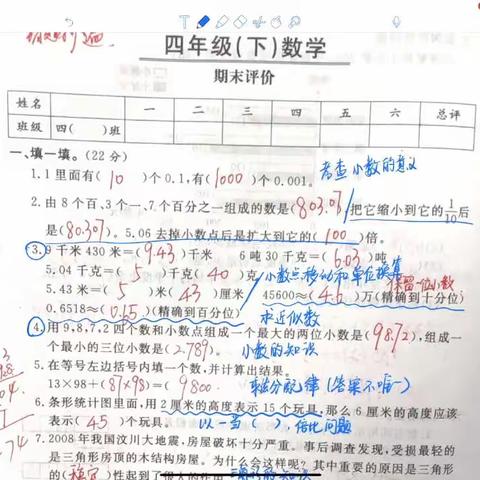 四年级(下)数学
期末评价
姓名 一 二 三 四 五 六 总评
班级 四( )班
一、填一填。(22分)
考查小数的意义
1.1里面有(10)个0.1,有(1000)个0.001。
2.由8个百、3个一、7个百分之一组成的数是(803.07),把它缩小到它的1/10后
是(80.307)。5.06去掉小数点后是扩大到它的(100)倍。
3.9千米430米=(9.43)千米 6吨30千克=(6.03)吨
5.04千克=(5)千克(40)克 小数点移动和单位换算
保留一位小数
5.43米=(5)米(43)厘米 45600≈(4.6)万(精确到十分位)
0.6518≈(0.65)(精确到百分位) 求近似数
4.用9、8、7、2四个数和小数点组成一个最大的两位小数是(98.72),组成一
个最小的三位小数是(2.789)。 小数的知识
5.在等号左边括号内填一个数,并计算出结果。
13×98+(87×98)=(9800) 分配律(答案不唯一)
6.条形统计图里,用2厘米的高度表示15个玩具,那么6厘米的高度应该
表示(45)个玩具。 以一当( ),倍比问题
7.2008年我国汶川大地震,房屋破坏十分严重。事后调查发现,受损最轻的
是三角形房顶的木结构房屋。为什么会这样呢?其中重要的原因是三角形
的(稳定)性起到了很大的作用